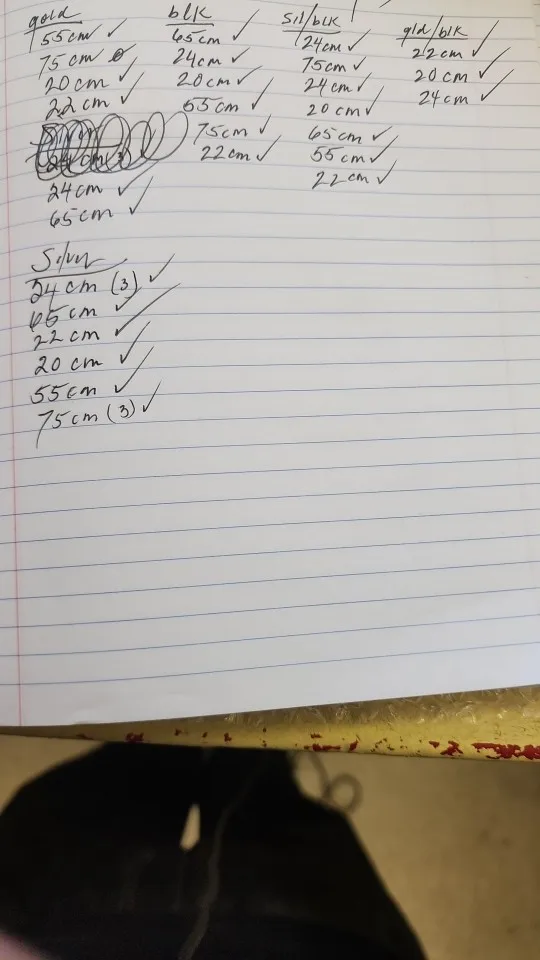 gold
55cm ✓
75cm
20cm ✓
22cm ✓
24cm ✓
65cm ✓
blk
65cm ✓
24cm ✓
20cm ✓
55cm ✓
75cm ✓
22cm ✓
Sil/blk
24cm ✓
75cm ✓
24cm ✓
20cm ✓
65cm ✓
55cm ✓
22cm ✓
gld/blk
22cm ✓
20cm ✓
24cm ✓
Silver
24cm (3) ✓
65cm ✓
22cm ✓
20cm ✓
55cm ✓
75cm (3) ✓